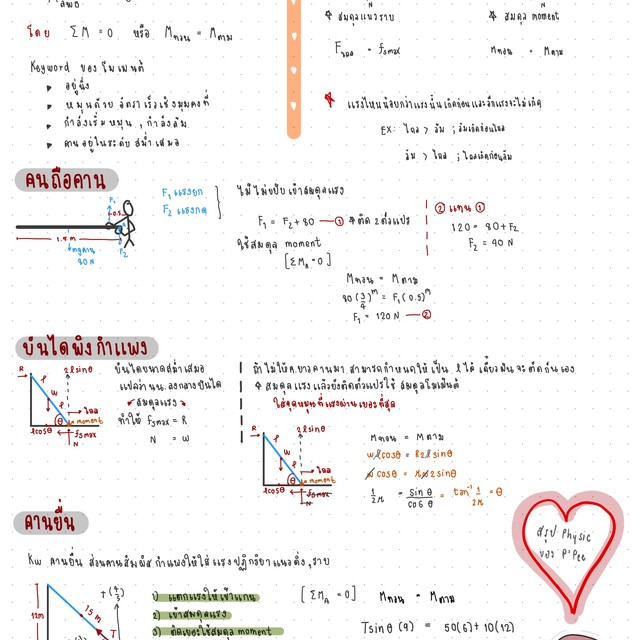 โดย ΣM = 0 หรือ Mทวน = Mตาม
Keyword ของ โมเมนต์
อยู่นิ่ง
หมุนด้วยอัตราเร็วเชิงมุมคงที่
กำลังเริ่มหมุน , กำลังล้ม
คานอยู่ในระดับสม่ำเสมอ
สมดุลแนวราบ
Fไถล = fsmax
N
สมดุล moment
Mทวน = Mตาม
แรงไหนน้อยกว่าแรงนั้นเกิดก่อนและอีกแรงจะไม่เกิด
EX: ไถล > ล้ม ; ล้มเกิดก่อนไถล
ล้ม > ไถล ; ไถลเกิดก่อนล้ม
คนถือคาน
F1
0.5
1.5 m
mgคาน
80 N
F2
F1 แรงยก
F2 แรงกด
ไม้ไม่ขยับเข้าสมดุลแรง
F1 = F2 + 80 — ① ติด 2 ตัวแปร
ใช้สมดุล moment
[ΣMA = 0]
Mทวน = Mตาม
80 (3/4)m = F1 (0.5)m
F1 = 120 N — ②
② แทน ①
120 = 80 + F2
F2 = 40 N
บันไดพิงกำแพง
R
2lsinθ
l
w
l
ไถล
θ
moment
lcosθ
fsmax
N
บันไดขนาดสม่ำเสมอ
แปลว่า นน. ลงกลางบันได
สมดุลแรง
ทำให้ fsmax = R
N = w
ถ้าไม่ให้ค.ยาวคานมา สามารถกำหนดให้เป็น l ได้ เดี๋ยวมันจะตัดกันเอง
สมดุลแรงแล้วยังติดตัวแปรใช้ สมดุลโมเมนต์
ใส่จุดหมุนที่แรงผ่านเยอะที่สุด
R
2lsinθ
l
w
l
ไถล
θ
moment
lcosθ
fsmax
N
Mทวน = Mตาม
wlcosθ = R2lsinθ
1/2μ = sinθ/cosθ = tan⁻¹ 1/2μ = θ
คานยื่น
Kw คานยื่น ส่วนคานสัมผัสกำแพงให้ใส่แรงปฏิกิริยาแนวดิ่ง, ราบ
12m
15m
T
1) แตกแรงให้เข้าแกน
2) เข้าสมดุลแรง
3) ติดเยอะใช้สมดุล moment
[ΣMA = 0] Mทวน = Mตาม
Tsinθ (9) = 50(6) + 10(12)
สรุป Physic
ของ P'Pee